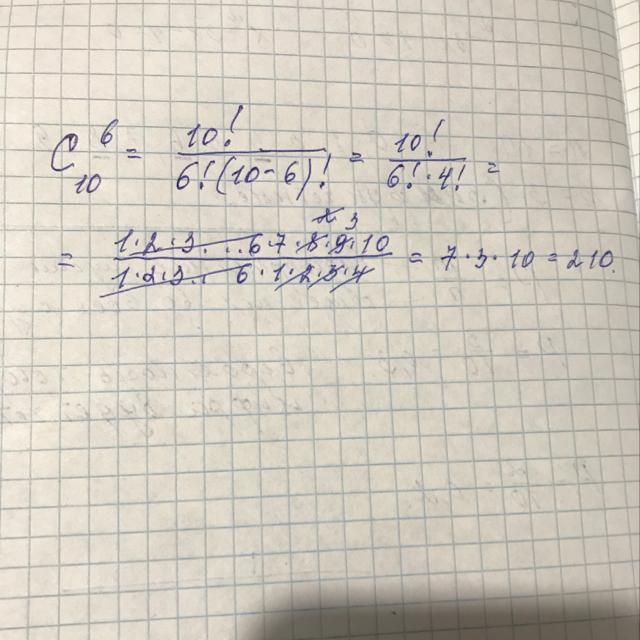 C₁₀⁶ = 10! / 6!(10-6)! = 10! / 6!·4! =
= 1·2·3...6·7·8·9·10 / 1·2·3...6·1·2·3·4 = 7·3·10 = 210.
2 3